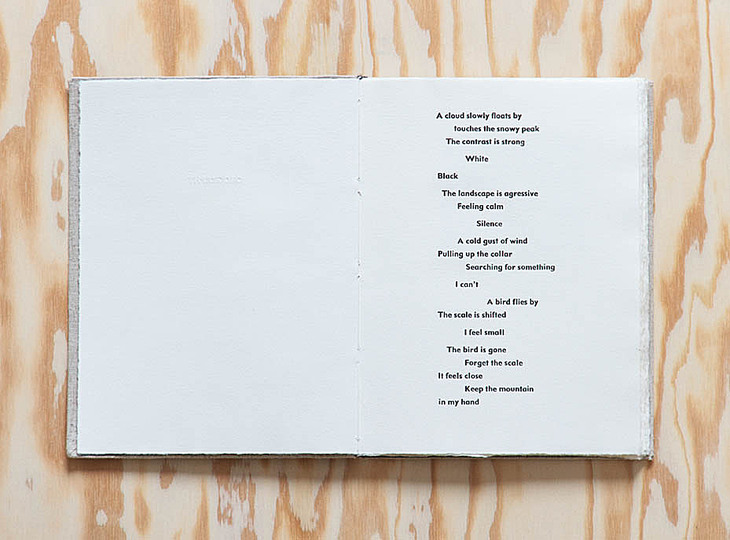 A cloud slowly floats by
touches the snowy peak
The contrast is strong
White
Black
The landscape is agressive
Feeling calm
Silence
A cold gust of wind
Pulling up the collar
Searching for something
I can't
A bird flies by
The scale is shifted
I feel small
The bird is gone
Forget the scale
It feels close
Keep the mountain
in my hand